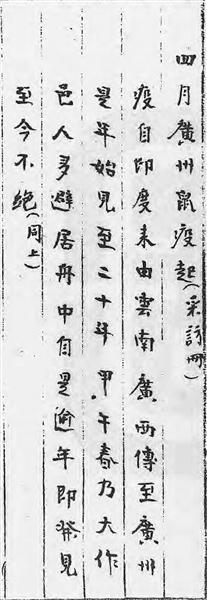 四月廣州鼠疫起(采訪冊)
疫自印度來由雲南廣西傳至廣州
是年始見至二十年甲午春乃大作
邑人多避居舟中自是逾年即發見
至今不絶(同上)